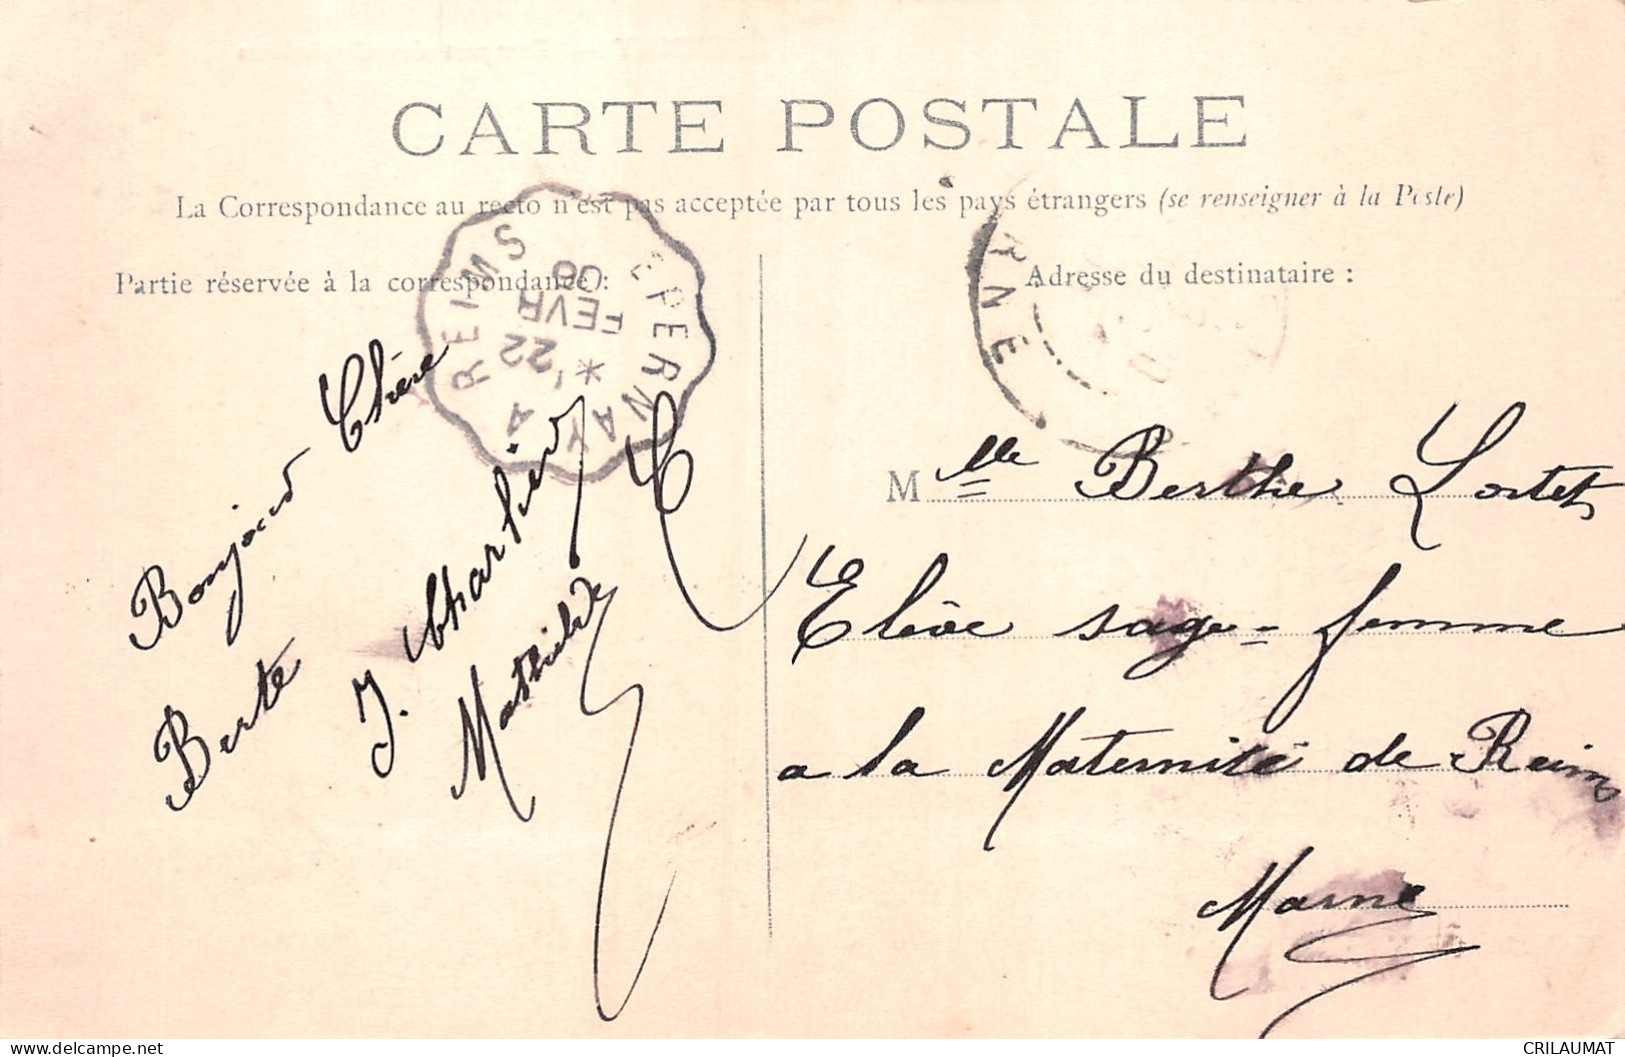 CARTE POSTALE
La Correspondance au recto n'est pas acceptée par tous les pays étrangers (se renseigner à la Poste)
Partie réservée à la correspondance :
Adresse du destinataire :
EPERNAY A REIMS
22
FEVR
08
RNE
Bonjour Chère
Berte
J. Charlier
Mathilde
Mlle Berthe Lortet
Elève sage-femme
a la Maternité de Reims
Marne
CRILAUMAT